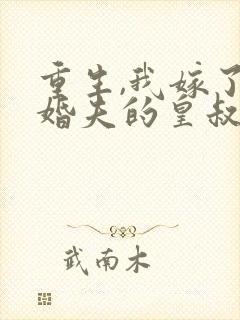 重生,我嫁了
婚夫的皇叔
武南木